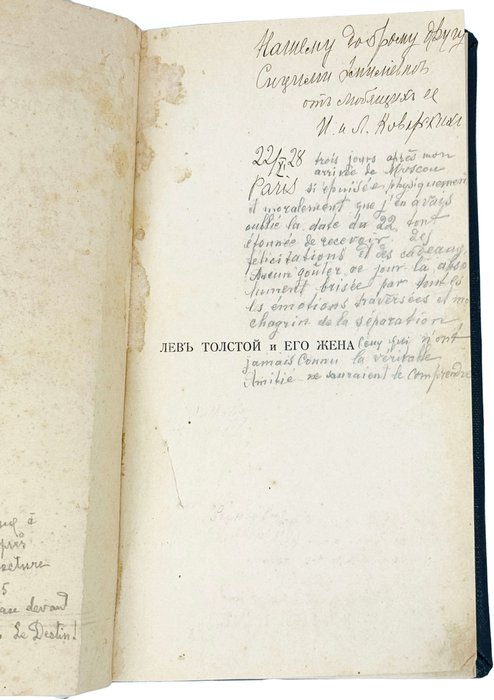 Нашему доброму другу
Сицилии Эмильевне
отъ любящихъ ее
И. и Л. Коварскихъ
22/XI 28 trois jours après mon
arrivée de Moscou
Paris si épuisée physiquement
et moralement que j'en avais
oublié la date du 22, tout
étonnée de recevoir des
félicitations et des cadeaux.
Aucun goûter, ce jour là abso
lument brisée par toutes
les émotions traversées et mo
chagrin de la séparation
ЛЕВЪ ТОЛСТОЙ и ЕГО ЖЕНА
Ceux qui n'ont
jamais connu la véritable
Amitié ne sauraient le comprendre
à
après
lecture
5
devant
Le Destin!